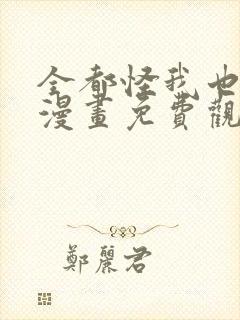 全都怪我也
漫畫免費觀
鄭麗君